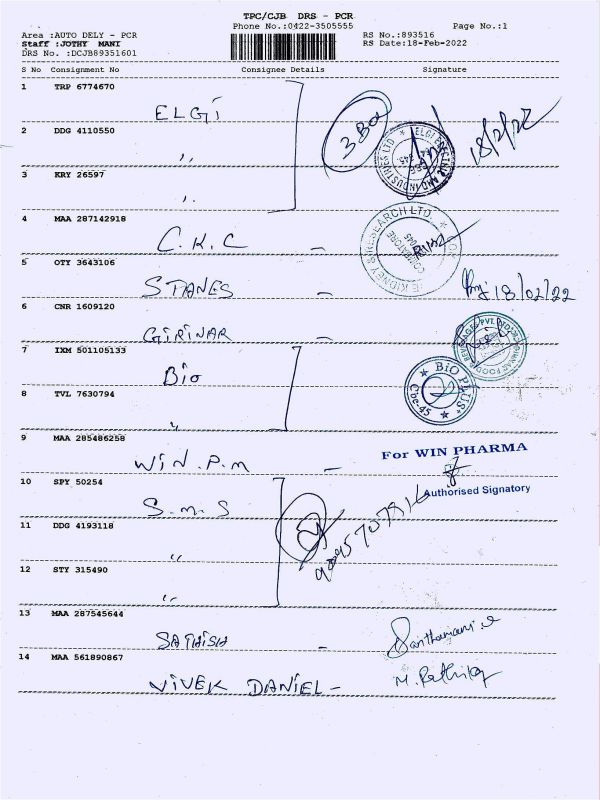 TPC/CJB DRS - PCR
Phone No.:0422-3505555
Page No.:1
Area :AUTO DELY - PCR
RS No.:893516
Staff :JOTHY MANI
RS Date:18-Feb-2022
DRS No. :DCJB89351601
S No Consignment No Consignee Details Signature
1 TRP 6774670
ELGi
2 DDG 4110550
,,
3 KRY 26597
,,
3 Box
18/2/22
4 MAA 287142918
C.K.C –
5 OTY 3643106
STANES –
18/02/22
6 CNR 1609120
GIRINAR
7 IXM 501105133
Bio
8 TVL 7630794
,,
BIO PLUS
Cbe-45
9 MAA 285486258
WiN.P.M –
For WIN PHARMA
Authorised Signatory
10 SPY 50254
S.M.S
11 DDG 4193118
,,
12 STY 315490
,,
13 MAA 287545644
SATHISH –
Santhamani
14 MAA 561890867
VIVEK DANIEL –
M. Rathika